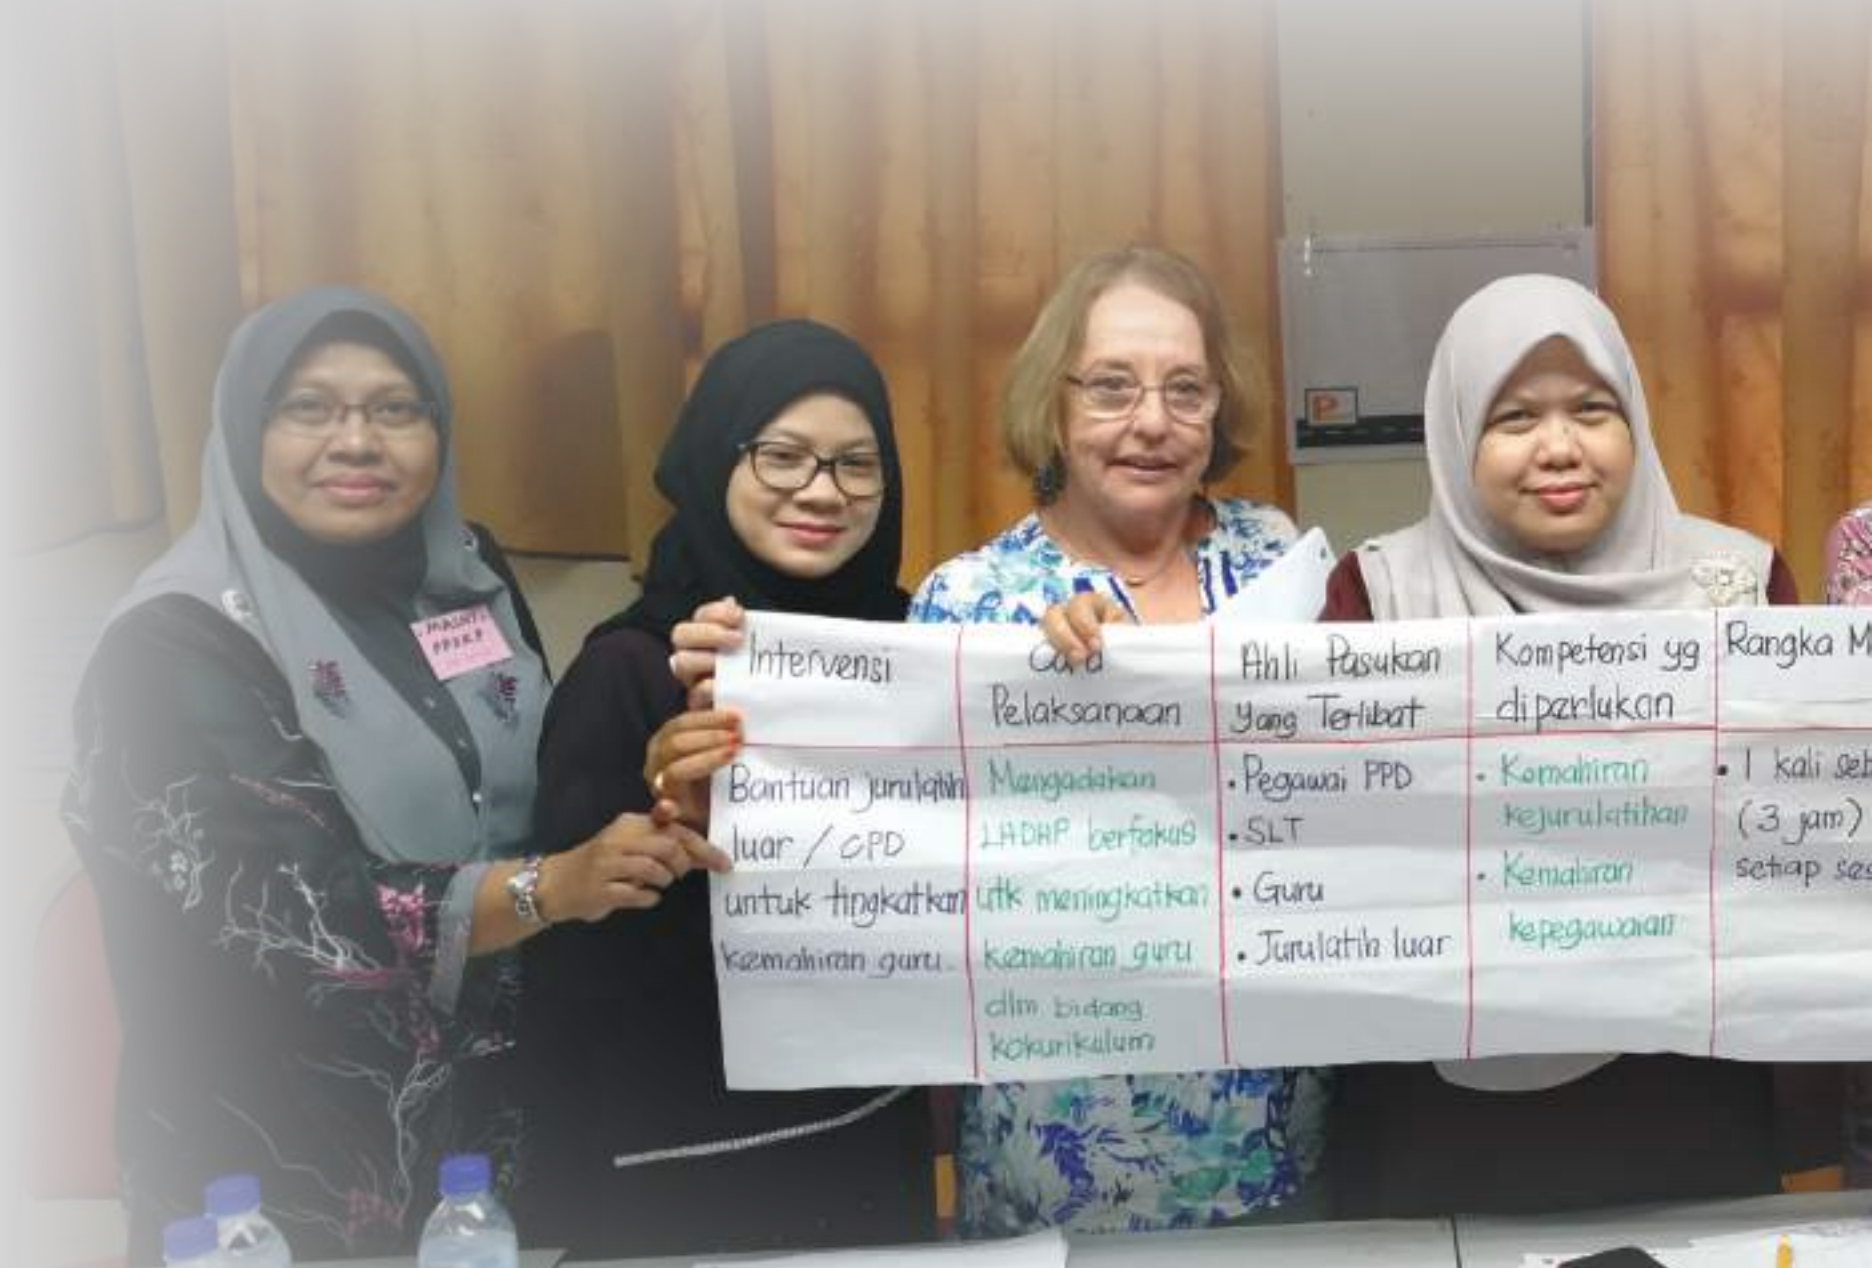 MASNI
PPDKP
P
Intervensi
Cara
Pelaksanaan
Ahli Pasukan
Yang Terlibat
Kompetensi yg
diperlukan
Rangka M
Bantuan jurulatih
luar / CPD
untuk tingkatkan
kemahiran guru.
Mengadakan
LADAP berfokus
utk meningkatkan
kemahiran guru
dlm bidang
kokurikulum
• Pegawai PPD
• SLT
• Guru
• Jurulatih luar
• Kemahiran
kejurulatihan
• Kemahiran
kepegawaian
• 1 kali seb
(3 jam)
setiap ses